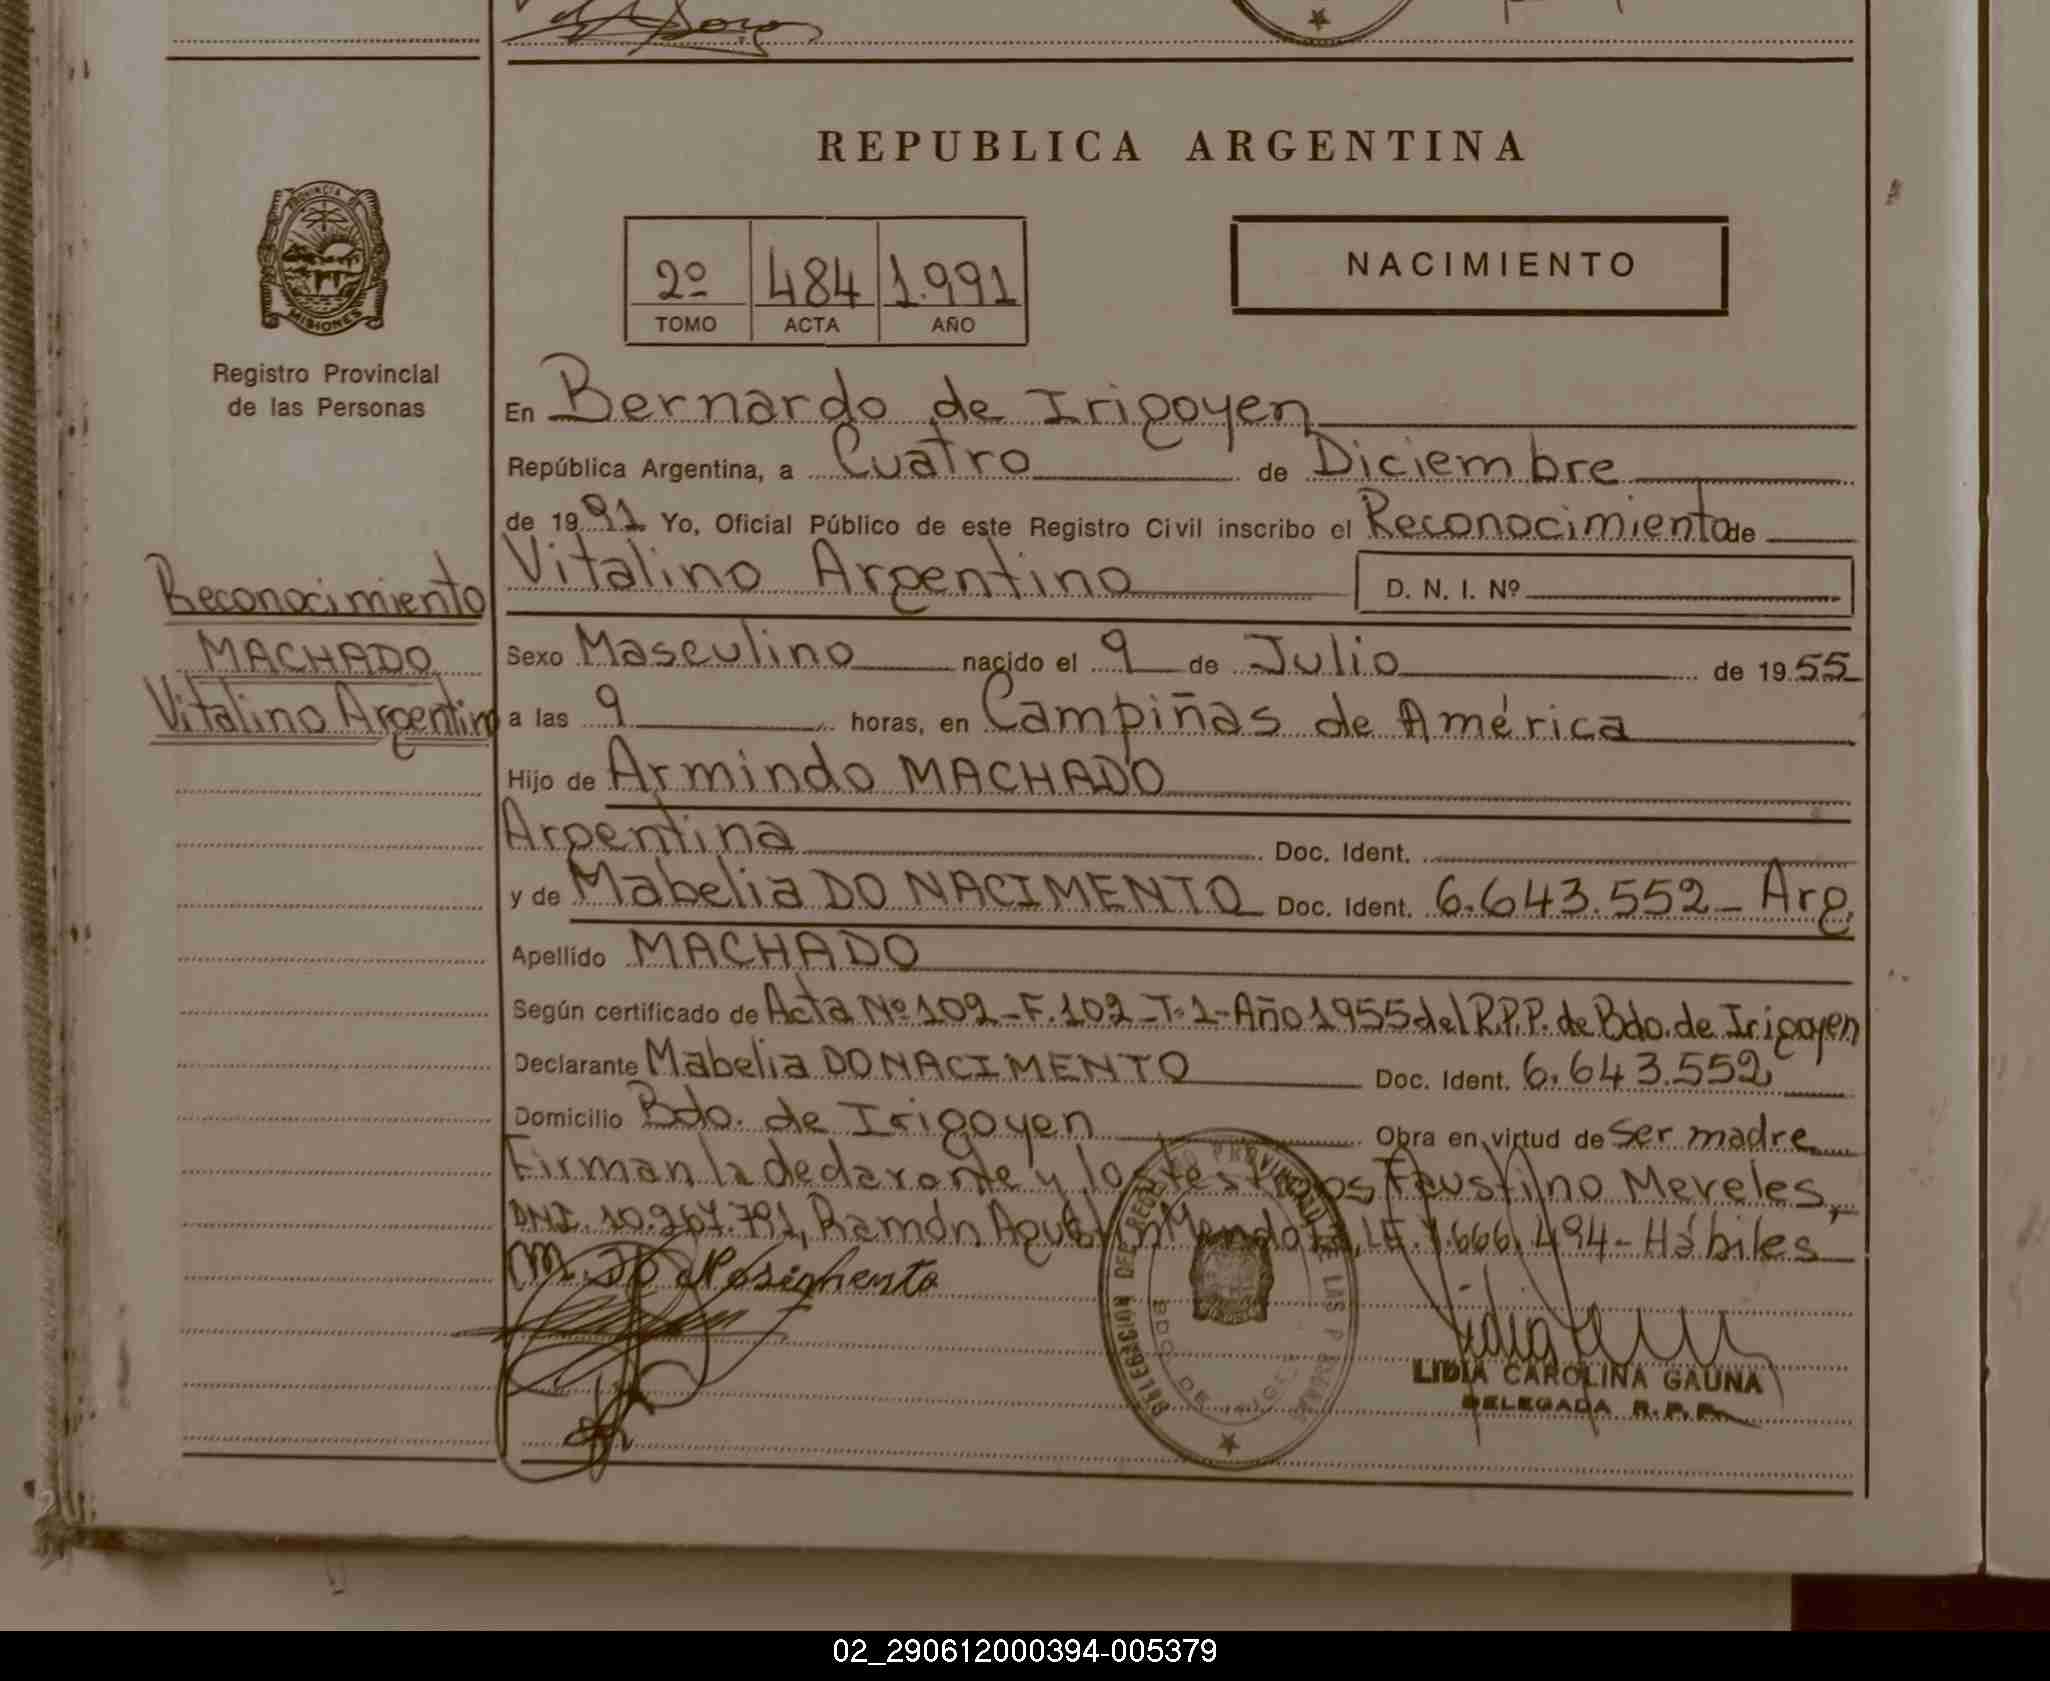 REPUBLICA ARGENTINA
PROVINCIA DE
MISIONES
Registro Provincial
de las Personas
2º 484 1.991
TOMO ACTA AÑO
NACIMIENTO
En Bernardo de Irigoyen
República Argentina, a Cuatro de Diciembre
de 1991 Yo, Oficial Público de este Registro Civil inscribo el Reconocimiento de
Vitalino Argentino D. N. I. Nº
Reconocimiento
MACHADO
Vitalino Argentino
Sexo Masculino nacido el 9 de Julio de 1955
a las 9 horas, en Campiñas de América
Hijo de Armindo MACHADO
Argentina Doc. Ident.
y de Mabelia DO NACIMENTO Doc. Ident. 6.643.552 - Arg.
Apellido MACHADO
Según certificado de Acta Nº 102 - F. 102 - T. 1 - Año 1955 del R.P.P. de Bdo. de Irigoyen
Declarante Mabelia DO NACIMENTO Doc. Ident. 6.643.552
Domicilio Bdo. de Irigoyen Obra en virtud de ser madre
Firman la declarante y los testigos Faustino Mereles,
DNI. 10.267.791, Ramón Agustín Mendoza, LE. 7.666.494 - Hábiles
M. Do Nasimento
DELEGACION DEL REGISTRO PROVINCIAL DE LAS PERSONAS
BDO. DE IRIGOYEN
LIDIA CAROLINA GAUNA
DELEGADA R. P. P.
02_290612000394-005379